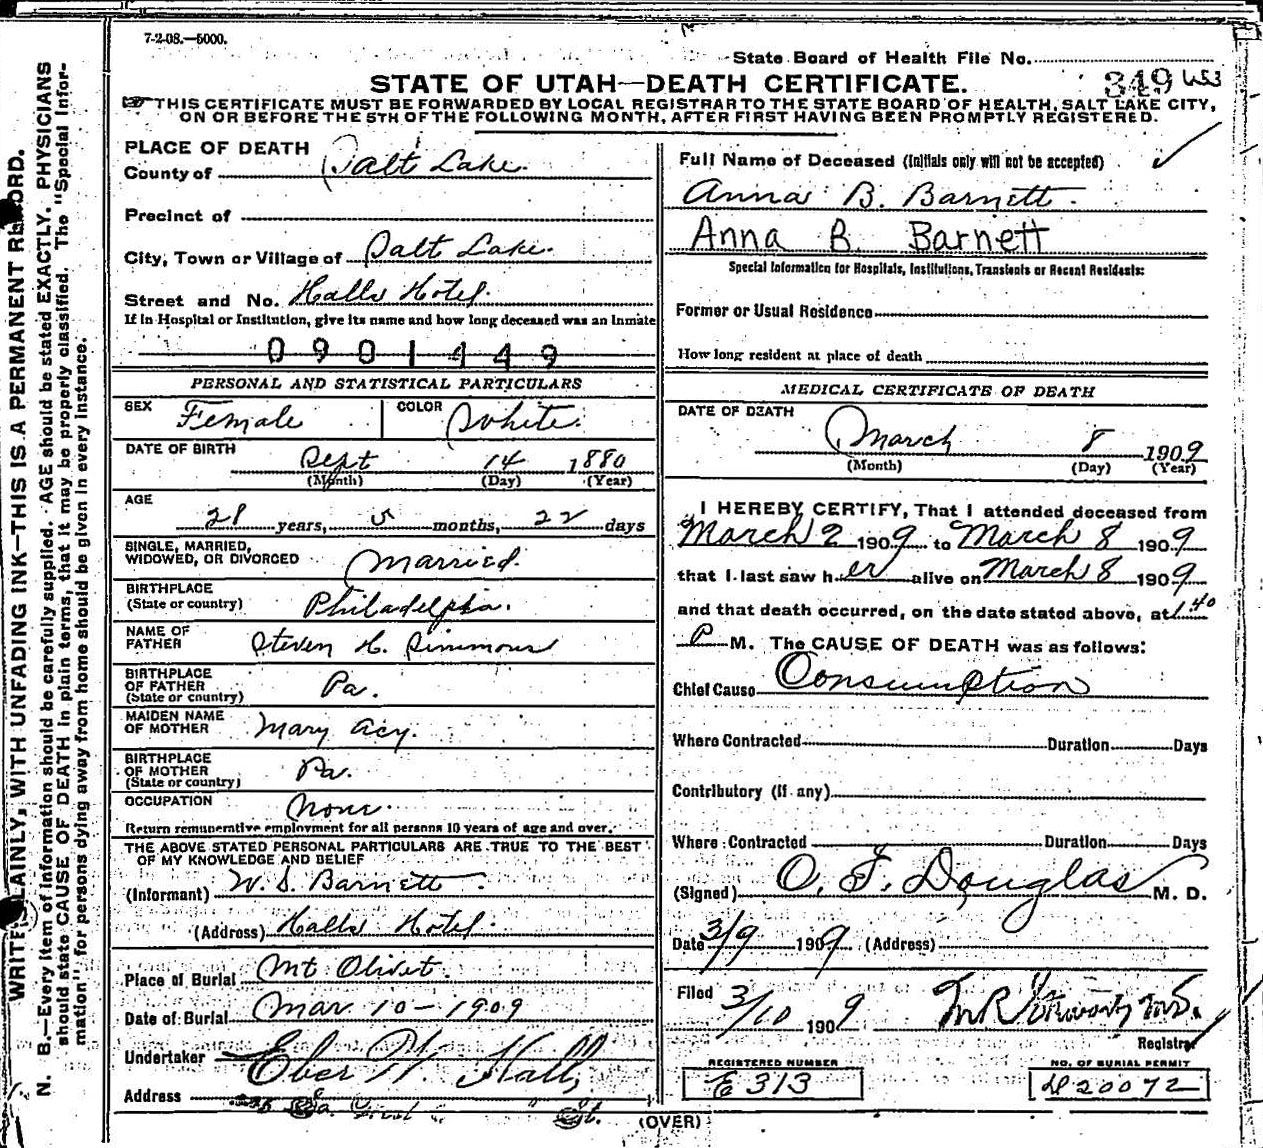 7-2-08.—5000.
State Board of Health File No.
STATE OF UTAH—DEATH CERTIFICATE.
349 453
THIS CERTIFICATE MUST BE FORWARDED BY LOCAL REGISTRAR TO THE STATE BOARD OF HEALTH, SALT LAKE CITY,
ON OR BEFORE THE 5TH OF THE FOLLOWING MONTH, AFTER FIRST HAVING BEEN PROMPTLY REGISTERED.
WRITE PLAINLY, WITH UNFADING INK—THIS IS A PERMANENT RECORD.
N. B.—Every item of information should be carefully supplied. AGE should be stated EXACTLY. PHYSICIANS
should state CAUSE OF DEATH in plain terms, that it may be properly classified. The "Special Infor-
mation" for persons dying away from home should be given in every instance.
PLACE OF DEATH
County of Salt Lake
Precinct of
City, Town or Village of Salt Lake
Street and No. Halls Hotel
If in Hospital or Institution, give its name and how long deceased was an Inmate
0901449
PERSONAL AND STATISTICAL PARTICULARS
SEX Female COLOR White
DATE OF BIRTH Sept 14 1880
(Month) (Day) (Year)
AGE
28 years, 5 months, 22 days
SINGLE, MARRIED,
WIDOWED, OR DIVORCED Married
BIRTHPLACE
(State or country) Philadelphia.
NAME OF
FATHER Steven H. Simmons
BIRTHPLACE
OF FATHER
(State or country) Pa.
MAIDEN NAME
OF MOTHER Mary Acy.
BIRTHPLACE
OF MOTHER
(State or country) Pa.
OCCUPATION None
Return remunerative employment for all persons 10 years of age and over.
THE ABOVE STATED PERSONAL PARTICULARS ARE TRUE TO THE BEST
OF MY KNOWLEDGE AND BELIEF
(Informant) W. S. Barnett
(Address) Halls Hotel
Place of Burial Mt Olivet.
Date of Burial Mar 10-1909
Undertaker Eber W. Hall
Address St.
Full Name of Deceased (Initials only will not be accepted)
Anna B. Barnett
Anna B. Barnett
Special Information for Hospitals, Institutions, Transients or Recent Residents:
Former or Usual Residence
How long resident at place of death
MEDICAL CERTIFICATE OF DEATH
DATE OF DEATH
March 8 1909
(Month) (Day) (Year)
I HEREBY CERTIFY, That I attended deceased from
March 2 1909 to March 8 1909
that I last saw her alive on March 8 1909
and that death occurred, on the date stated above, at 1.40
P M. The CAUSE OF DEATH was as follows:
Chief Cause Consumption
Where Contracted Duration Days
Contributory (if any)
Where Contracted Duration Days
(Signed) O. F. Douglas M. D.
Date 3/9 1909 (Address)
Filed 3/10 1909
Registrar
REGISTERED NUMBER
E 313
NO. OF BURIAL PERMIT
D 20072
(OVER)